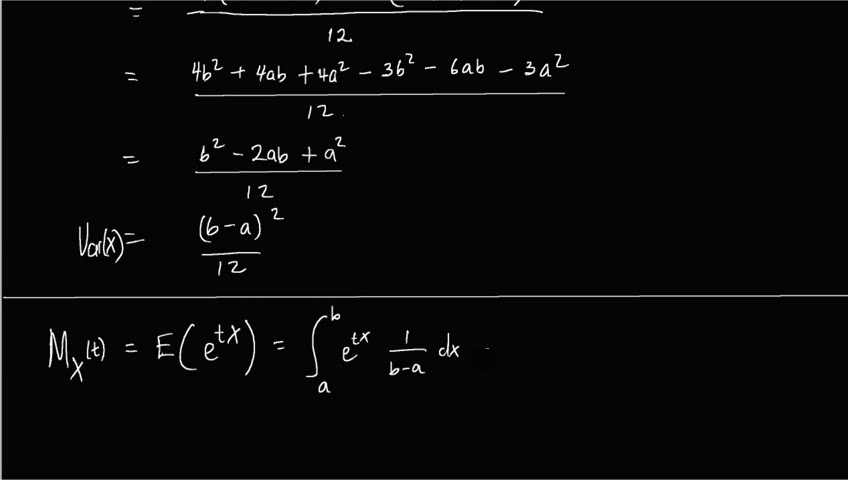 =
12
= 4b² + 4ab + 4a² − 3b² − 6ab − 3a²
12
= b² − 2ab + a²
12
Var(X) = (b−a)²
12
M_X(t) = E(e^{tX}) = ∫_a^b e^{tx} 1/(b−a) dx